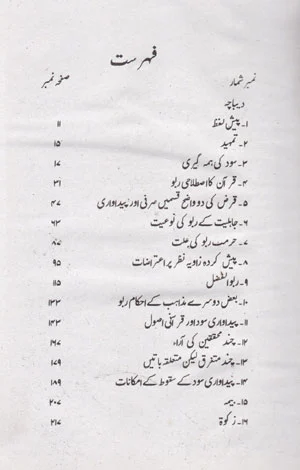 فہرست
نمبر شمار صفحہ نمبر
دیباچہ
۱۔ پیش لفظ ۱۱
۲۔ تمہید ۱۵
۳۔ سود کی ہمہ گیری ۱۷
۴۔ قرآن کا اصطلاحی ربٰو ۳۱
۵۔ قرض کی دو واضح قسمیں صرفی اور پیداواری ۴۷
۶۔ جاہلیت کے ربٰو کی نوعیت ۶۳
۷۔ حرمت ربٰو کی علت ۸۷
۸۔ پیش کردہ زاویہ نظر پر اعتراضات ۹۵
۹۔ ربٰو الفضل ۱۱۵
۱۰۔ بعض دوسرے مذاہب کے احکام ربٰو ۱۳۳
۱۱۔ پیداواری سود اور قرآنی اصول ۱۴۳
۱۲۔ چند محققین کی آراء ۱۶۷
۱۳۔ چند متفرق لیکن متعلقہ باتیں ۱۷۹
۱۴۔ پیداواری سود کے سقوط کے امکانات ۱۸۹
۱۵۔ بیمہ ۲۰۷
۱۶۔ زکوٰۃ ۲۱۷